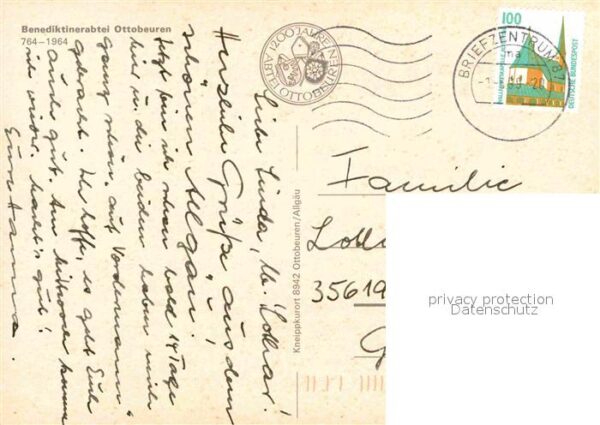 Benediktinerabtei Ottobeuren
764–1964
1200 JAHRE
ABTEI OTTOBEUREN
100
DEUTSCHE BUNDESPOST
BRIEFZENTRUM 87
Liebe Linda, lb. Lothar!
Herzliche Grüße aus dem
schönen Allgäu!
Jetzt bin ich schon bald 14 Tage
hier u. die beiden haben mich
ganz schön "auf Vordermann"
gebracht. Ich hoffe, es geht Euch
auch gut. Am Mittwoch komme
ich wieder. Macht's gut!
Eure Hanna.
Kneippkurort 8942 Ottobeuren/Allgäu
Familie
35619
G
privacy protection
Datenschutz